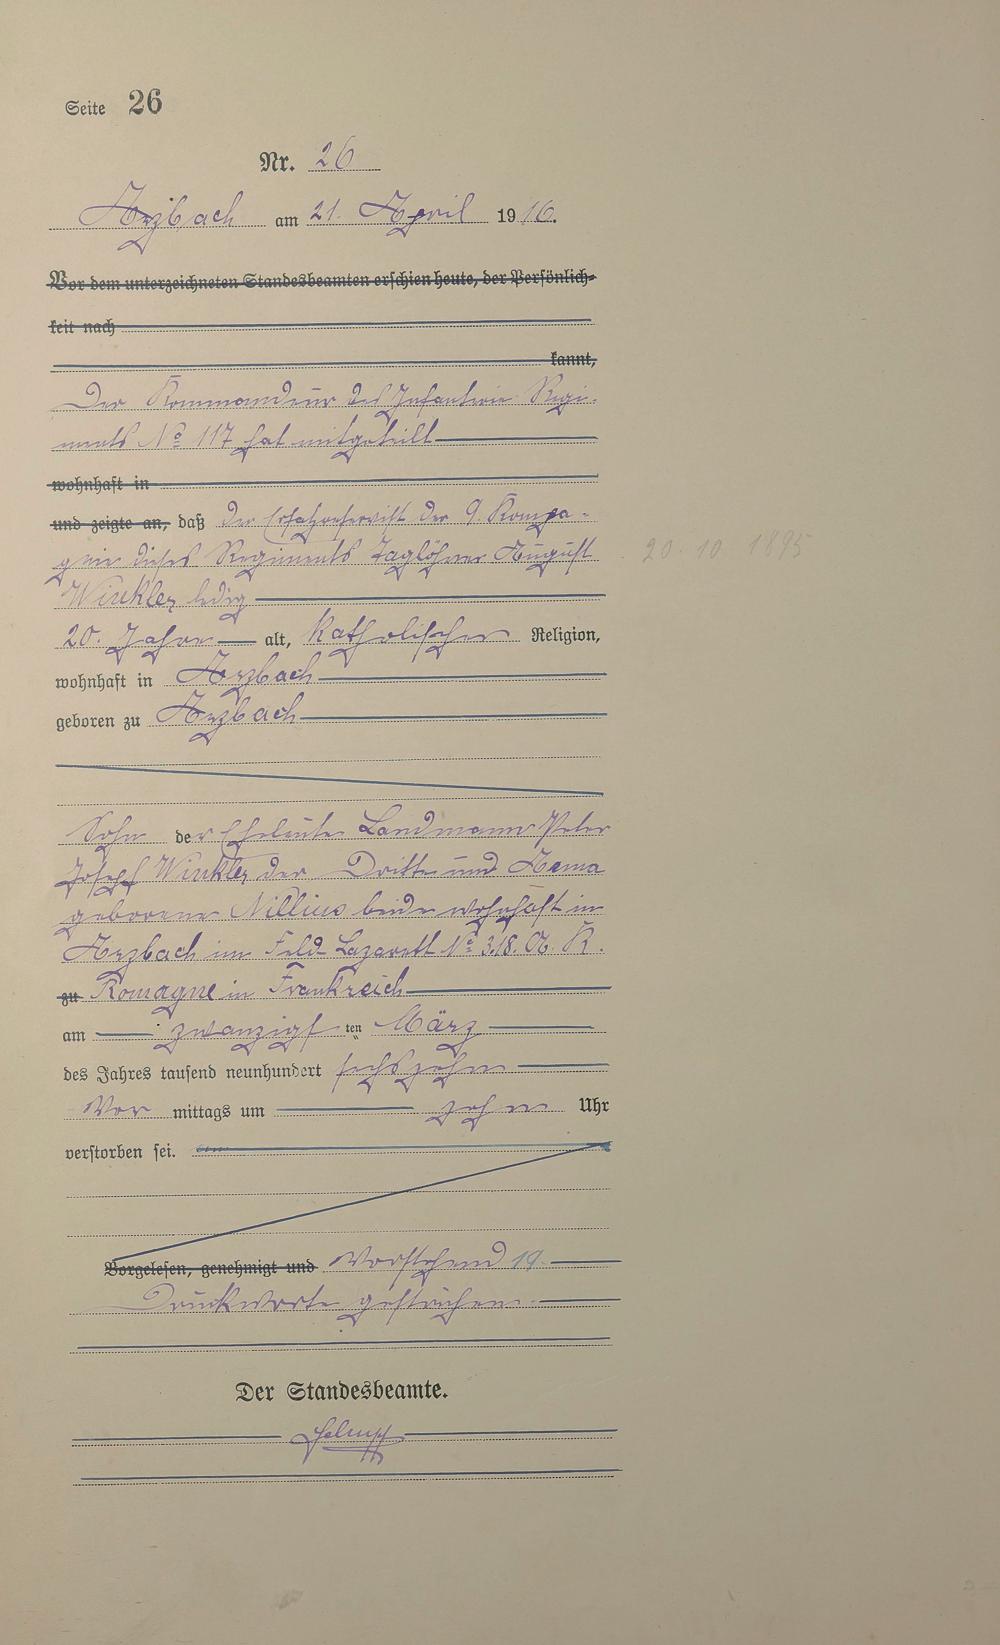 Seite 26
Nr. 26
Arzbach am 21. April 1916.
Vor dem unterzeichneten Standesbeamten erschien heute, der Persönlich-
keit nach
kannt,
Der Kommandeur des Infanterie Regi-
ments No 117 hat mitgeteilt
wohnhaft in
und zeigte an, daß der Ersatzreservist der 9. Kompa-
gnie dieses Regiments Taglöhner August
Winkler ledig
20. Jahre alt, katholischer Religion,
wohnhaft in Arzbach
geboren zu Arzbach
Sohn der Eheleute Landmann Peter
Joseph Winkler der Dritte und Anna
geborene Nillius beide wohnhaft in
Arzbach im Feld-Lazarett No 3.18. A. K.
zu Romagne in Frankreich
am zwanzigsten März
des Jahres tausend neunhundert sechszehn
Vor mittags um zehn Uhr
verstorben sei.
Vorgelesen, genehmigt und Vorstehend 19
Druckworte gestrichen.
Der Standesbeamte.
20. 10. 1895